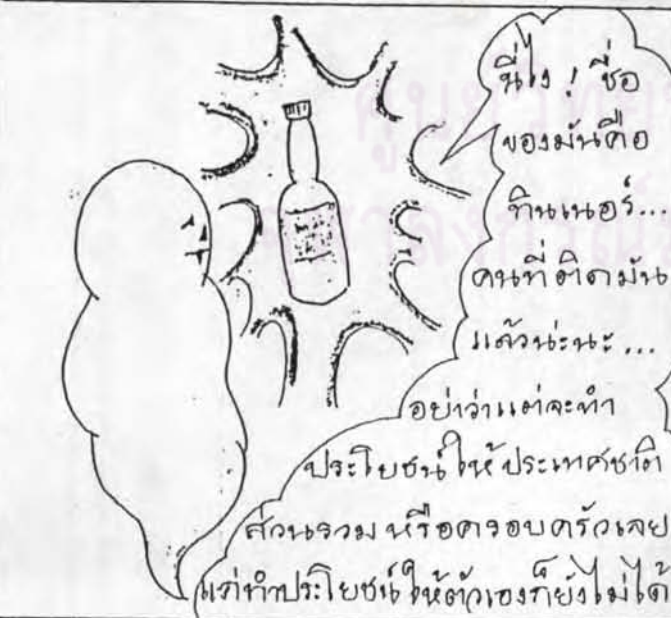 นี่ไง ! ชื่อ
ของมันคือ
ทินเนอร์...
คนที่ติดมัน
แล้วน่ะนะ...
อย่าว่าแต่จะทำ
ประโยชน์ให้ประเทศชาติ
ส่วนรวม หรือครอบครัวเลย
แค่ทำประโยชน์ให้ตัวเองก็ยังไม่ได้